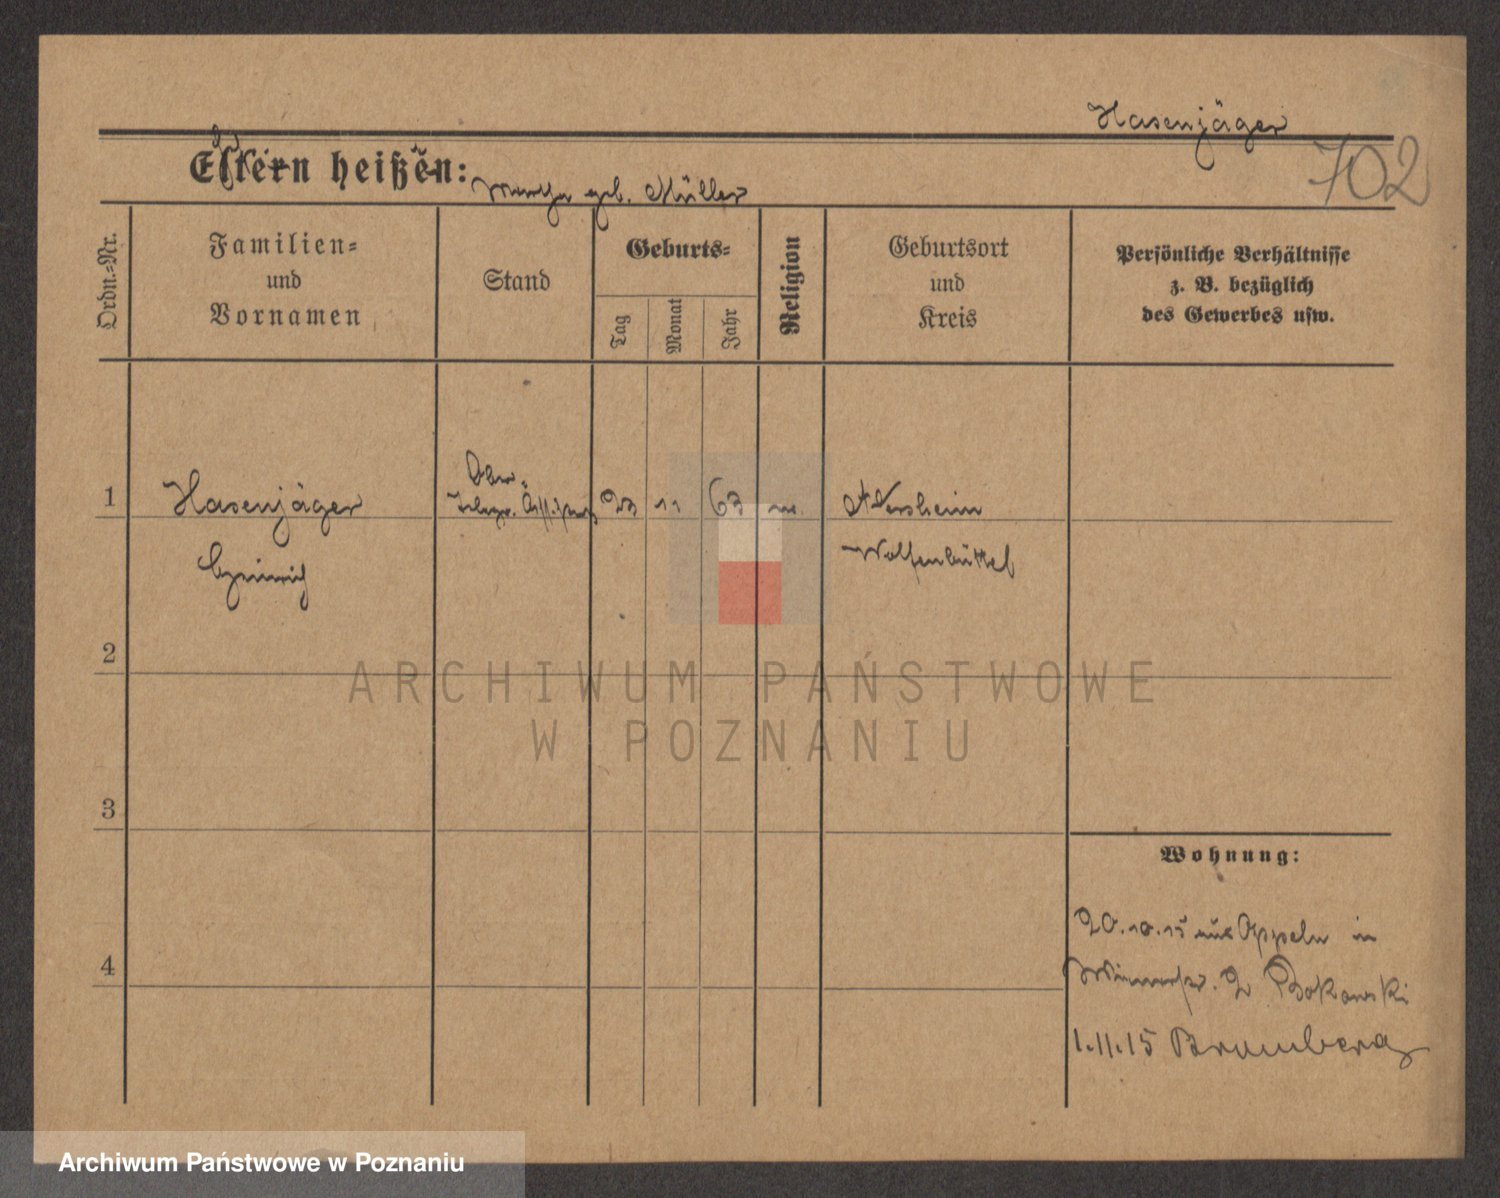 Hasenjäger
702
Eltern heißen:
geb. Müller
Ordn.=Nr.
Familien=
und
Vornamen
Stand
Geburts=
Tag
Monat
Jahr
Religion
Geburtsort
und
Kreis
Persönliche Verhältnisse
z. B. bezüglich
des Gewerbes usw.
1
Hasenjäger
Ober=
Telegr.
23
11
63
Heinrich
Wolfenbüttel
2
3
4
Wohnung:
20.10.15 aus Oppeln in
2 Bokowski
1.11.15 Bromberg
ARCHIWUM PAŃSTWOWE
W POZNANIU
Archiwum Państwowe w Poznaniu